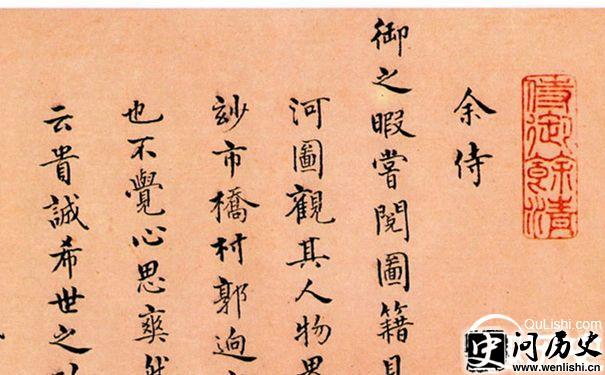 侍御餘清
余侍
御之暇嘗閱圖籍見
河圖觀其人物界
玅市橋村郭迥
也不覺心思爽然
云貴誠希世之
QuLishi.com
问历史
www.wenlishi.cn